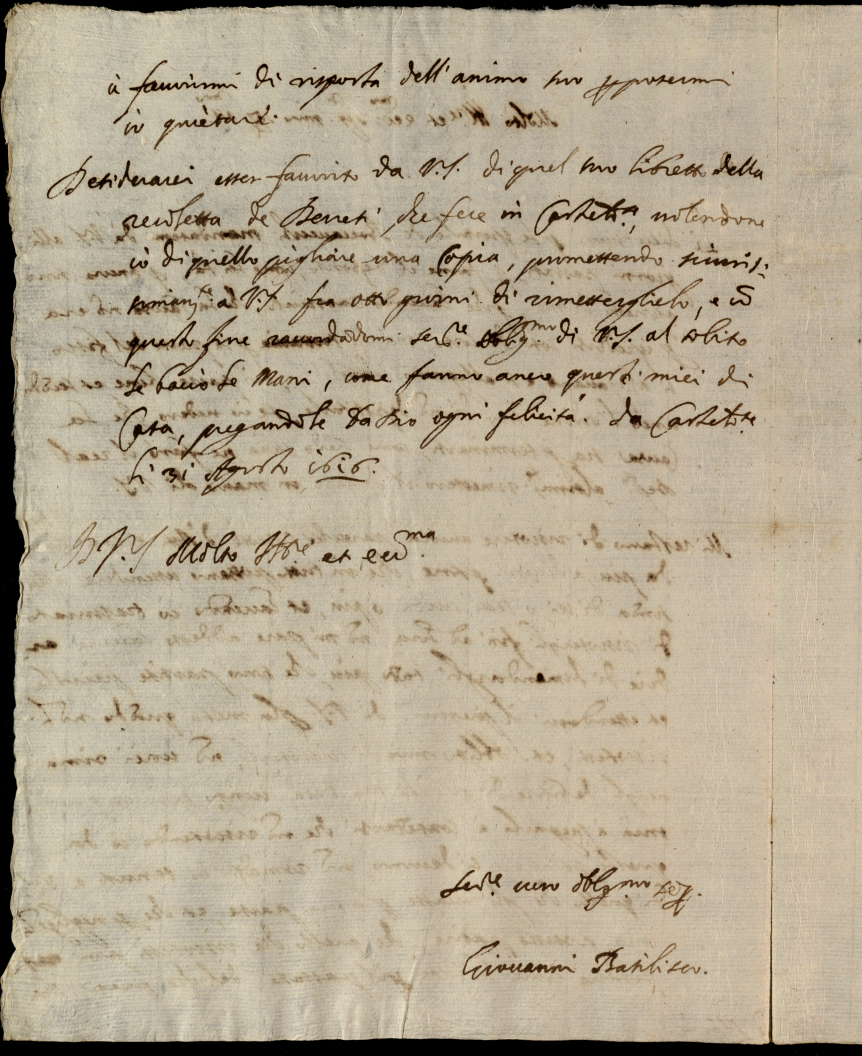 à favorirmi di risposta dell'animo suo p potermi
io quietare.
Desiderarei esser favorito da V.S. di quel suo libretto della
de Secreti, che fece in volendone
io di quello pigliare una Copia, promettendo sicuris-
simam.te à V.S. fra otto giorni di rimetterglielo, e cõ
questo fine raccordãdomi ser.re obblig.mo di V.S. al solito
le bacio le Mani, come fanno anco questi miei di
Casa, pregandole da Dio ogni felicità. da
li 31 Agosto 1616.
D V.S. Molto Ill.re et ecc.ma
ser.re vero obblig.mo
Giovanni Batilisco.